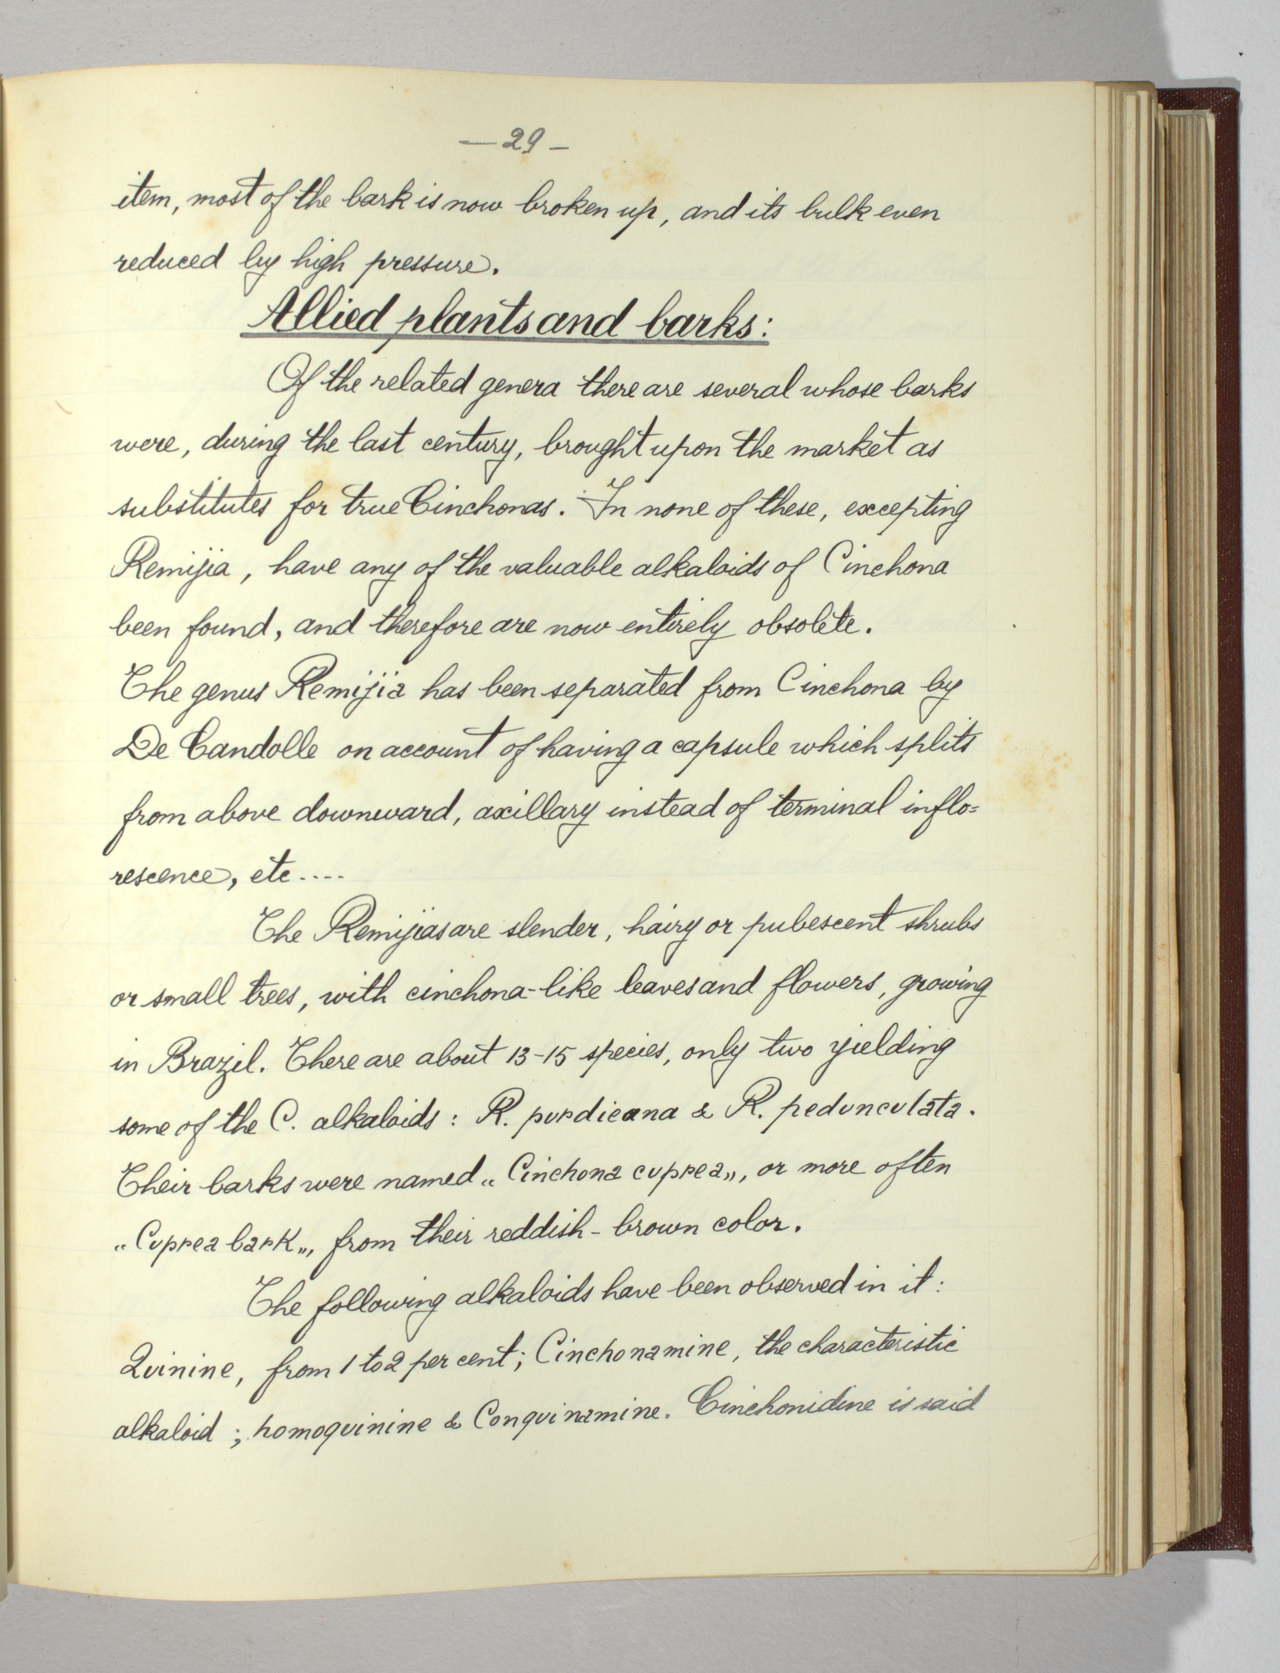 — 29 –
item, most of the bark is now broken up, and its bulk even
reduced by high pressure.
Allied plants and barks:
Of the related genera there are several whose barks
were, during the last century, brought upon the market as
substitutes for true Cinchonas. In none of these, excepting
Remijia, have any of the valuable alkaloids of Cinchona
been found, and therefore are now entirely obsolete.
The genus Remijia has been separated from Cinchona by
De Candolle on account of having a capsule which splits
from above downward, axillary instead of terminal inflo=
rescence, etc....
The Remijias are slender, hairy or pubescent shrubs
or small trees, with cinchona-like leaves and flowers, growing
in Brazil. There are about 13-15 species, only two yielding
some of the C. alkaloids: R. purdieana & R. pedunculata.
Their barks were named „Cinchona cuprea„, or more often
„Cuprea bark„, from their reddish-brown color.
The following alkaloids have been observed in it:
Quinine, from 1 to 2 per cent; Cinchonamine, the characteristic
alkaloid; homoquinine & Conquinamine. Cinchonidine is said